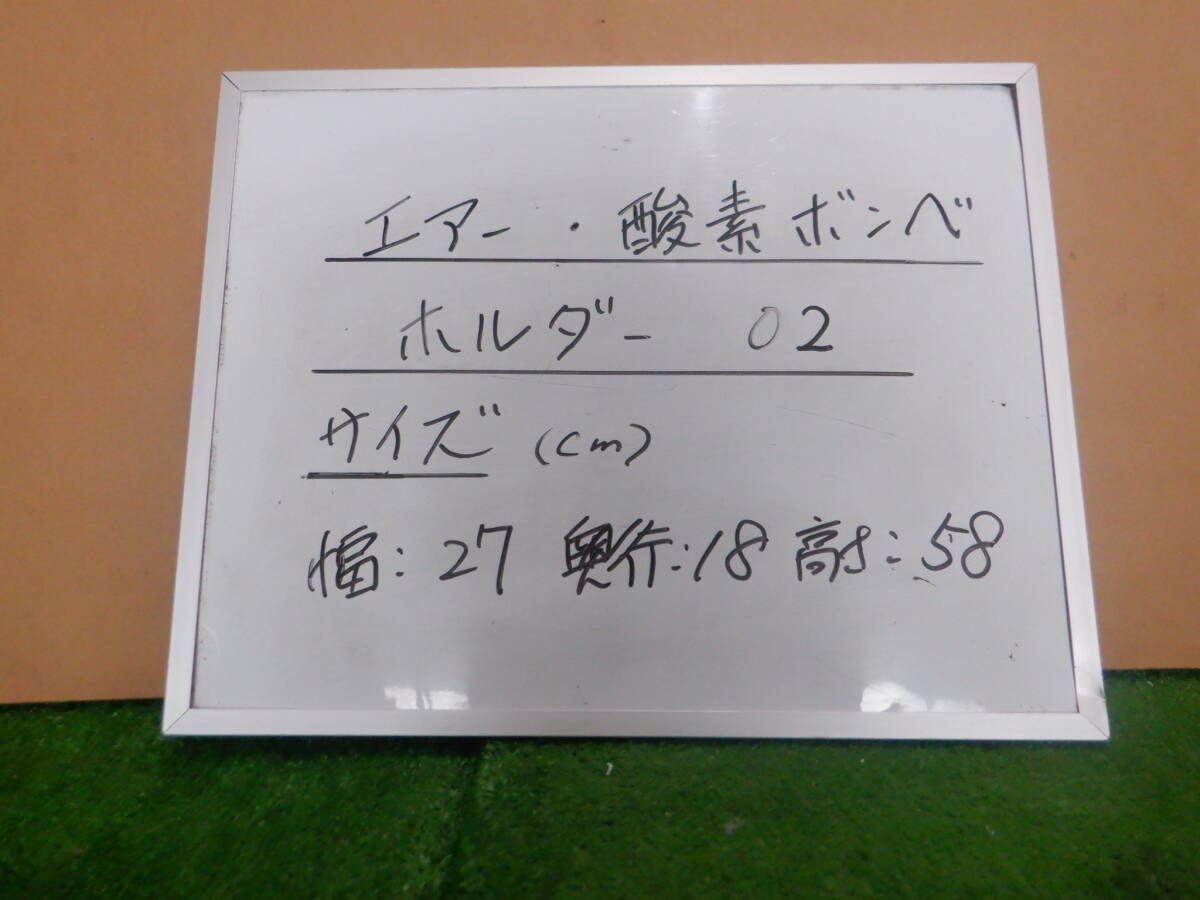 エアー・酸素ボンベ
ホルダー 02
サイズ (cm)
幅:27 奥行:18 高さ:58